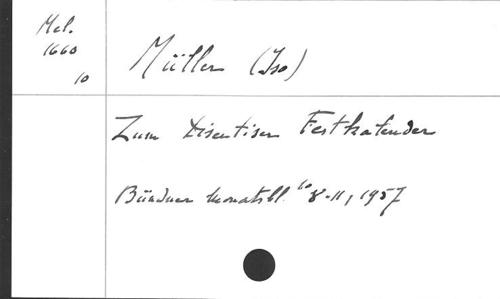 Mel.
1660
10
Müller (Iso)
Zum Disentiser Festkalender
Bündner Monatsbl. no 8-11, 1957